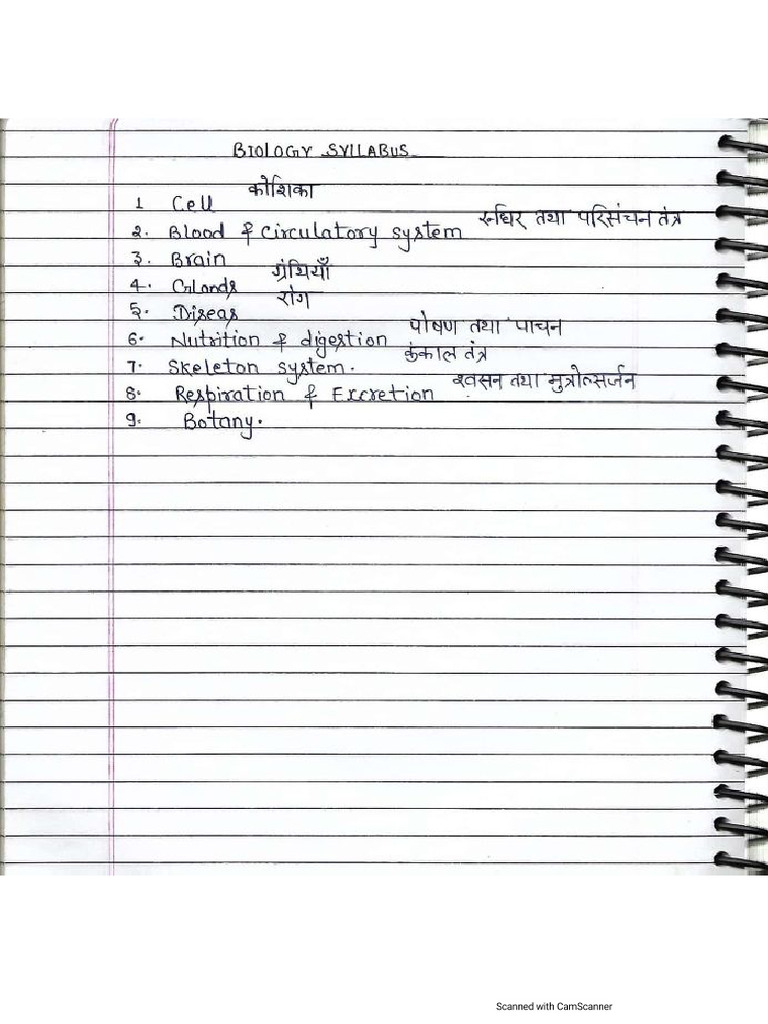 BIOLOGY SYLLABUS
1 Cell कोशिका
2. Blood & Circulatory system रूधिर तथा परिसंचन तंत्र
3. Brain
4. Glands ग्रंथियाँ
5. Diseas रोग
6. Nutrition & digestion पोषण तथा पाचन
7. Skeleton system. कंकाल तंत्र
8. Respiration & Excretion श्वसन तथा मुत्रोत्सर्जन
9. Botany.
Scanned with CamScanner